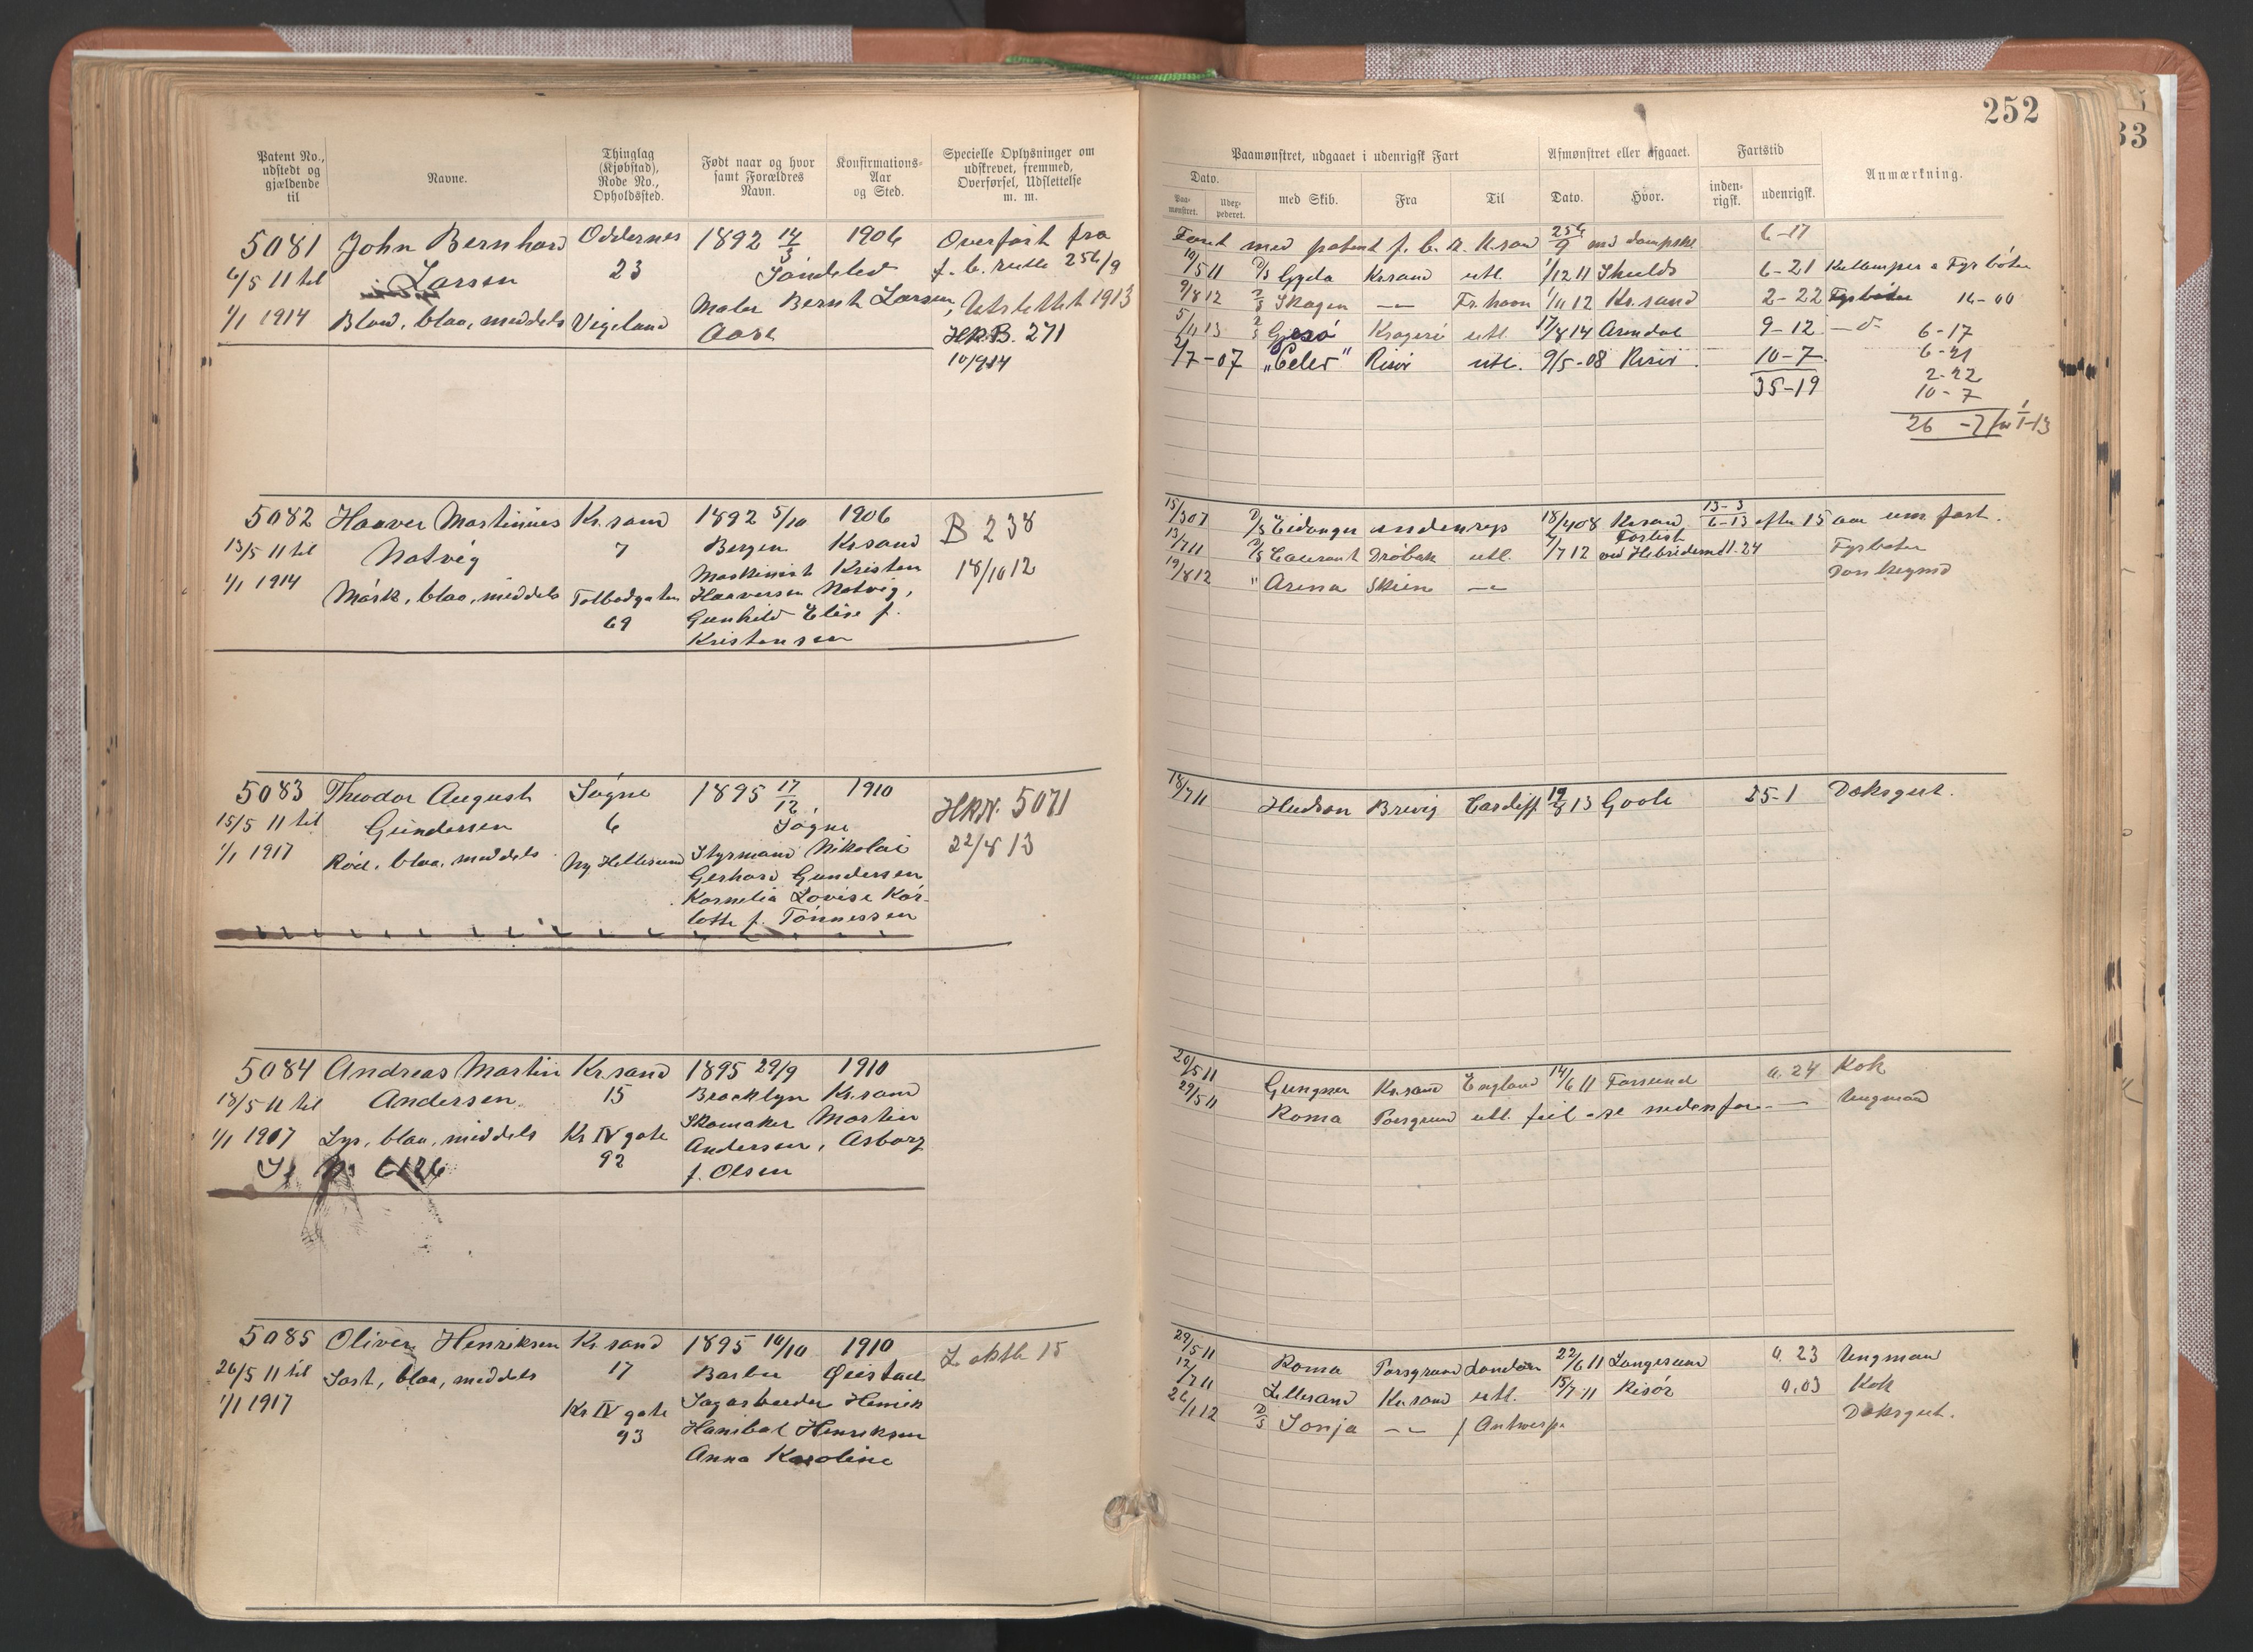 252
Patent No., udstedt og gjældende til
Navne.
Thinglag (Kjøbstad), Rode No., Opholdssted.
Født naar og hvor samt Forældres Navn.
Konfirmations-Aar og Sted.
Specielle Oplysninger om udskrevet, fremmed, Overførsel, Udslettelse m. m.
Paamønstret, udgaaet i udenrigsk Fart
Afmønstret eller afgaaet.
Fartstid
Anmærkning.
Dato.
Paa-mønstret.
Udex-pederet.
med Skib.
Fra
Til
Dato.
Hvor.
inden-rigsk.
udenrigsk.
5081 John Bernhard Oddernes 1892 14/3 1906 Overført fra
6/5 11 til Larsen 23 Søndeled f. b. rulle 256/9
1/1 1914 Blond, blaa, middels Vigeland Maler Bernt Larsen, Udslettet 1913
Aase HKB. 271
10/9 14
Faret med patent f. b. R. Kr.sand 256/9 med dampsk. 6-17
19/5 11 D/S Gyda Kr.sand utl. 1/12 11 Shields 6-21 Kullemper & Fyrbøter
9/8 12 D/S Skagen -"- Fr.havn 1/11 12 Kr.sand 2-22 Fyrbøter 16-00
5/11 13 D/S Gjesø Kragerø utl. 17/8 14 Arendal 9-12 -"- 6-17
2/7-07 "Celer" Risør utl. 9/5-08 Risør 10-7 6-21
35-19 2-22
10-7
26-7 før 1/1-13
5082 Haaver Martinius Kr.sand 1892 5/10 1906 B 238
13/5 11 til Natvig 7 Bergen Kr.sand 18/10 12
1/1 1914 Mørk, blaa, middels Tolbodgaten Maskinist Kristen
69 Haaversen Natvig,
Gunhild Elise f.
Kristensen
15/3 07 D/S Eidanger indenrigs 18/4 08 Kr.sand 13-3 6-13 efter 15 aar um fart.
13/7 11 D/S Laurant Drøbak utl. 7/7 12 Forlist ved Hebriderne 11.24 Fyrbøter
19/8 12 " Arena Skien -"- Donkeymd
5083 Theodor August Søgne 1895 17/12, 1910 HKN. 5071
15/5 11 til Gundersen 6 Søgne 22/8 13
1/1 1917 Rød, blaa, middels Ny Hellesund Styrmand Nikolai
Gerhard Gundersen
Kornelia Lovise Kar-
lotte f. Tønnessen
18/7 11 Hudson Brevig Cardiff 19/8 13 Goole 25-1 Dæksgut.
5084 Andreas Martin Kr.sand 1895 29/9 1910
18/5 11 til Andersen 15 Brooklyn Kr.sand
1/1 1907 Lys, blaa, middels Kr IV gate Skomaker Martin
92 Andersen, Asborg
f. Olsen
20/5 11 Gungner Kr.sand England 14/6 11 Farsund 0.24 Kok
29/5 11 Roma Porsgrund utl. feil - se nedenfor - Ungmand
5085 Oliver Henriksen Kr.sand 1895 14/10 1910
26/5 11 til Sort, blaa, middels 17 Barbu Øiestad
1/1 1917 Kr IV gate Sagarbeider Henrik
93 Hanibal Henriksen
Anna Karoline
29/5 11 Roma Porsgrund London 22/6 11 Langesund 0.23 Ungmand
12/7 11 Lillesand Kr.sand utl. 15/7 11 Risør 0.03 Kok
26/1 12 D/S Sonja -"- Antwerp. Dæksgut.